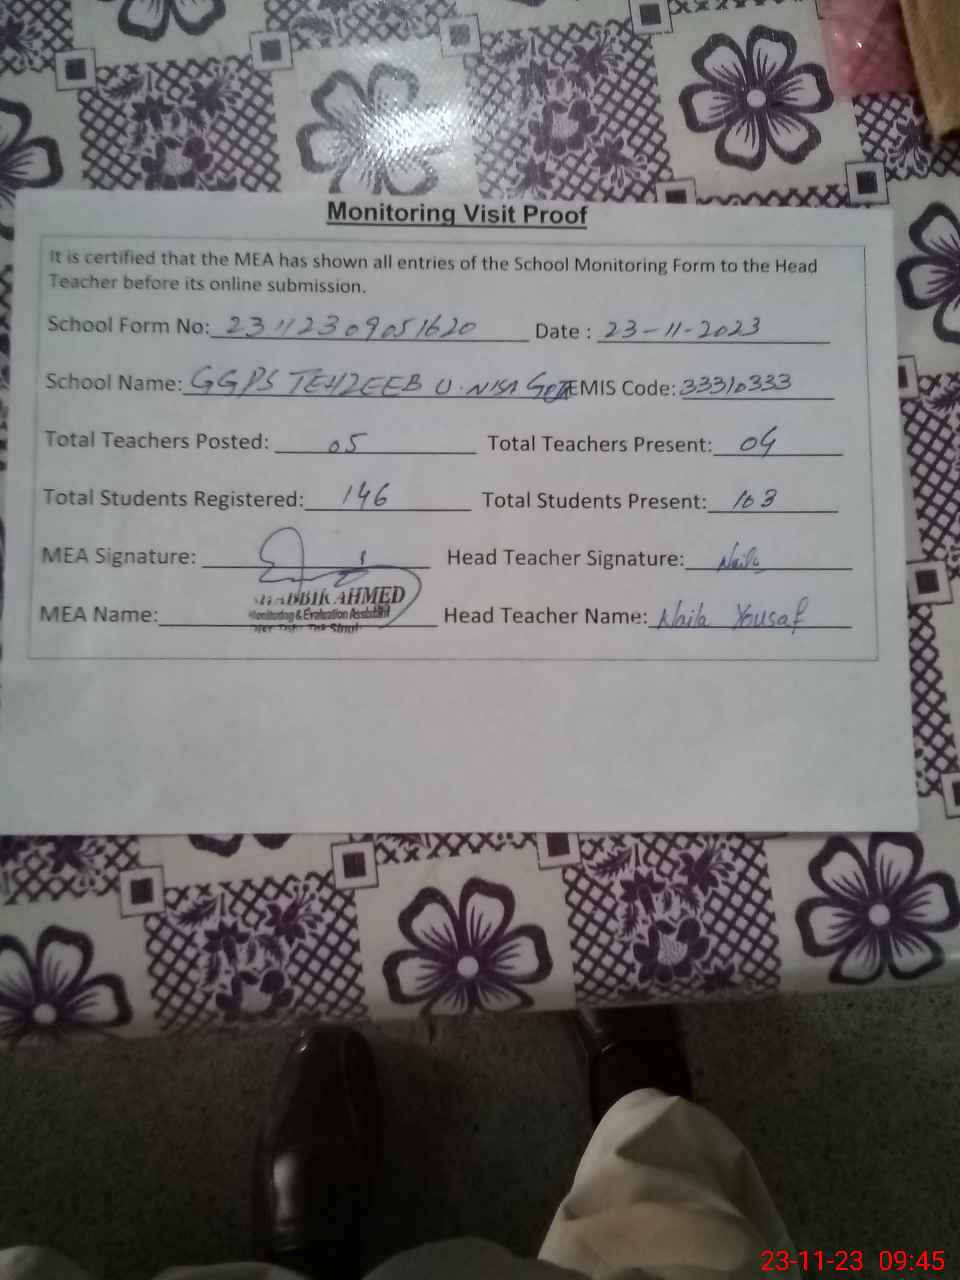 Monitoring Visit Proof
It is certified that the MEA has shown all entries of the School Monitoring Form to the Head
Teacher before its online submission.
School Form No: 23112309051620 Date : 23-11-2023
School Name: GGPS TEHZEEB U.NISA EMIS Code: 33310333
Total Teachers Posted: 05 Total Teachers Present: 04
Total Students Registered: 146 Total Students Present: 103
MEA Signature: Head Teacher Signature: Naila
MEA Name: SHABBIR AHMED Head Teacher Name: Naila Yousaf
Monitoring & Evaluation Assistant
23-11-23 09:45